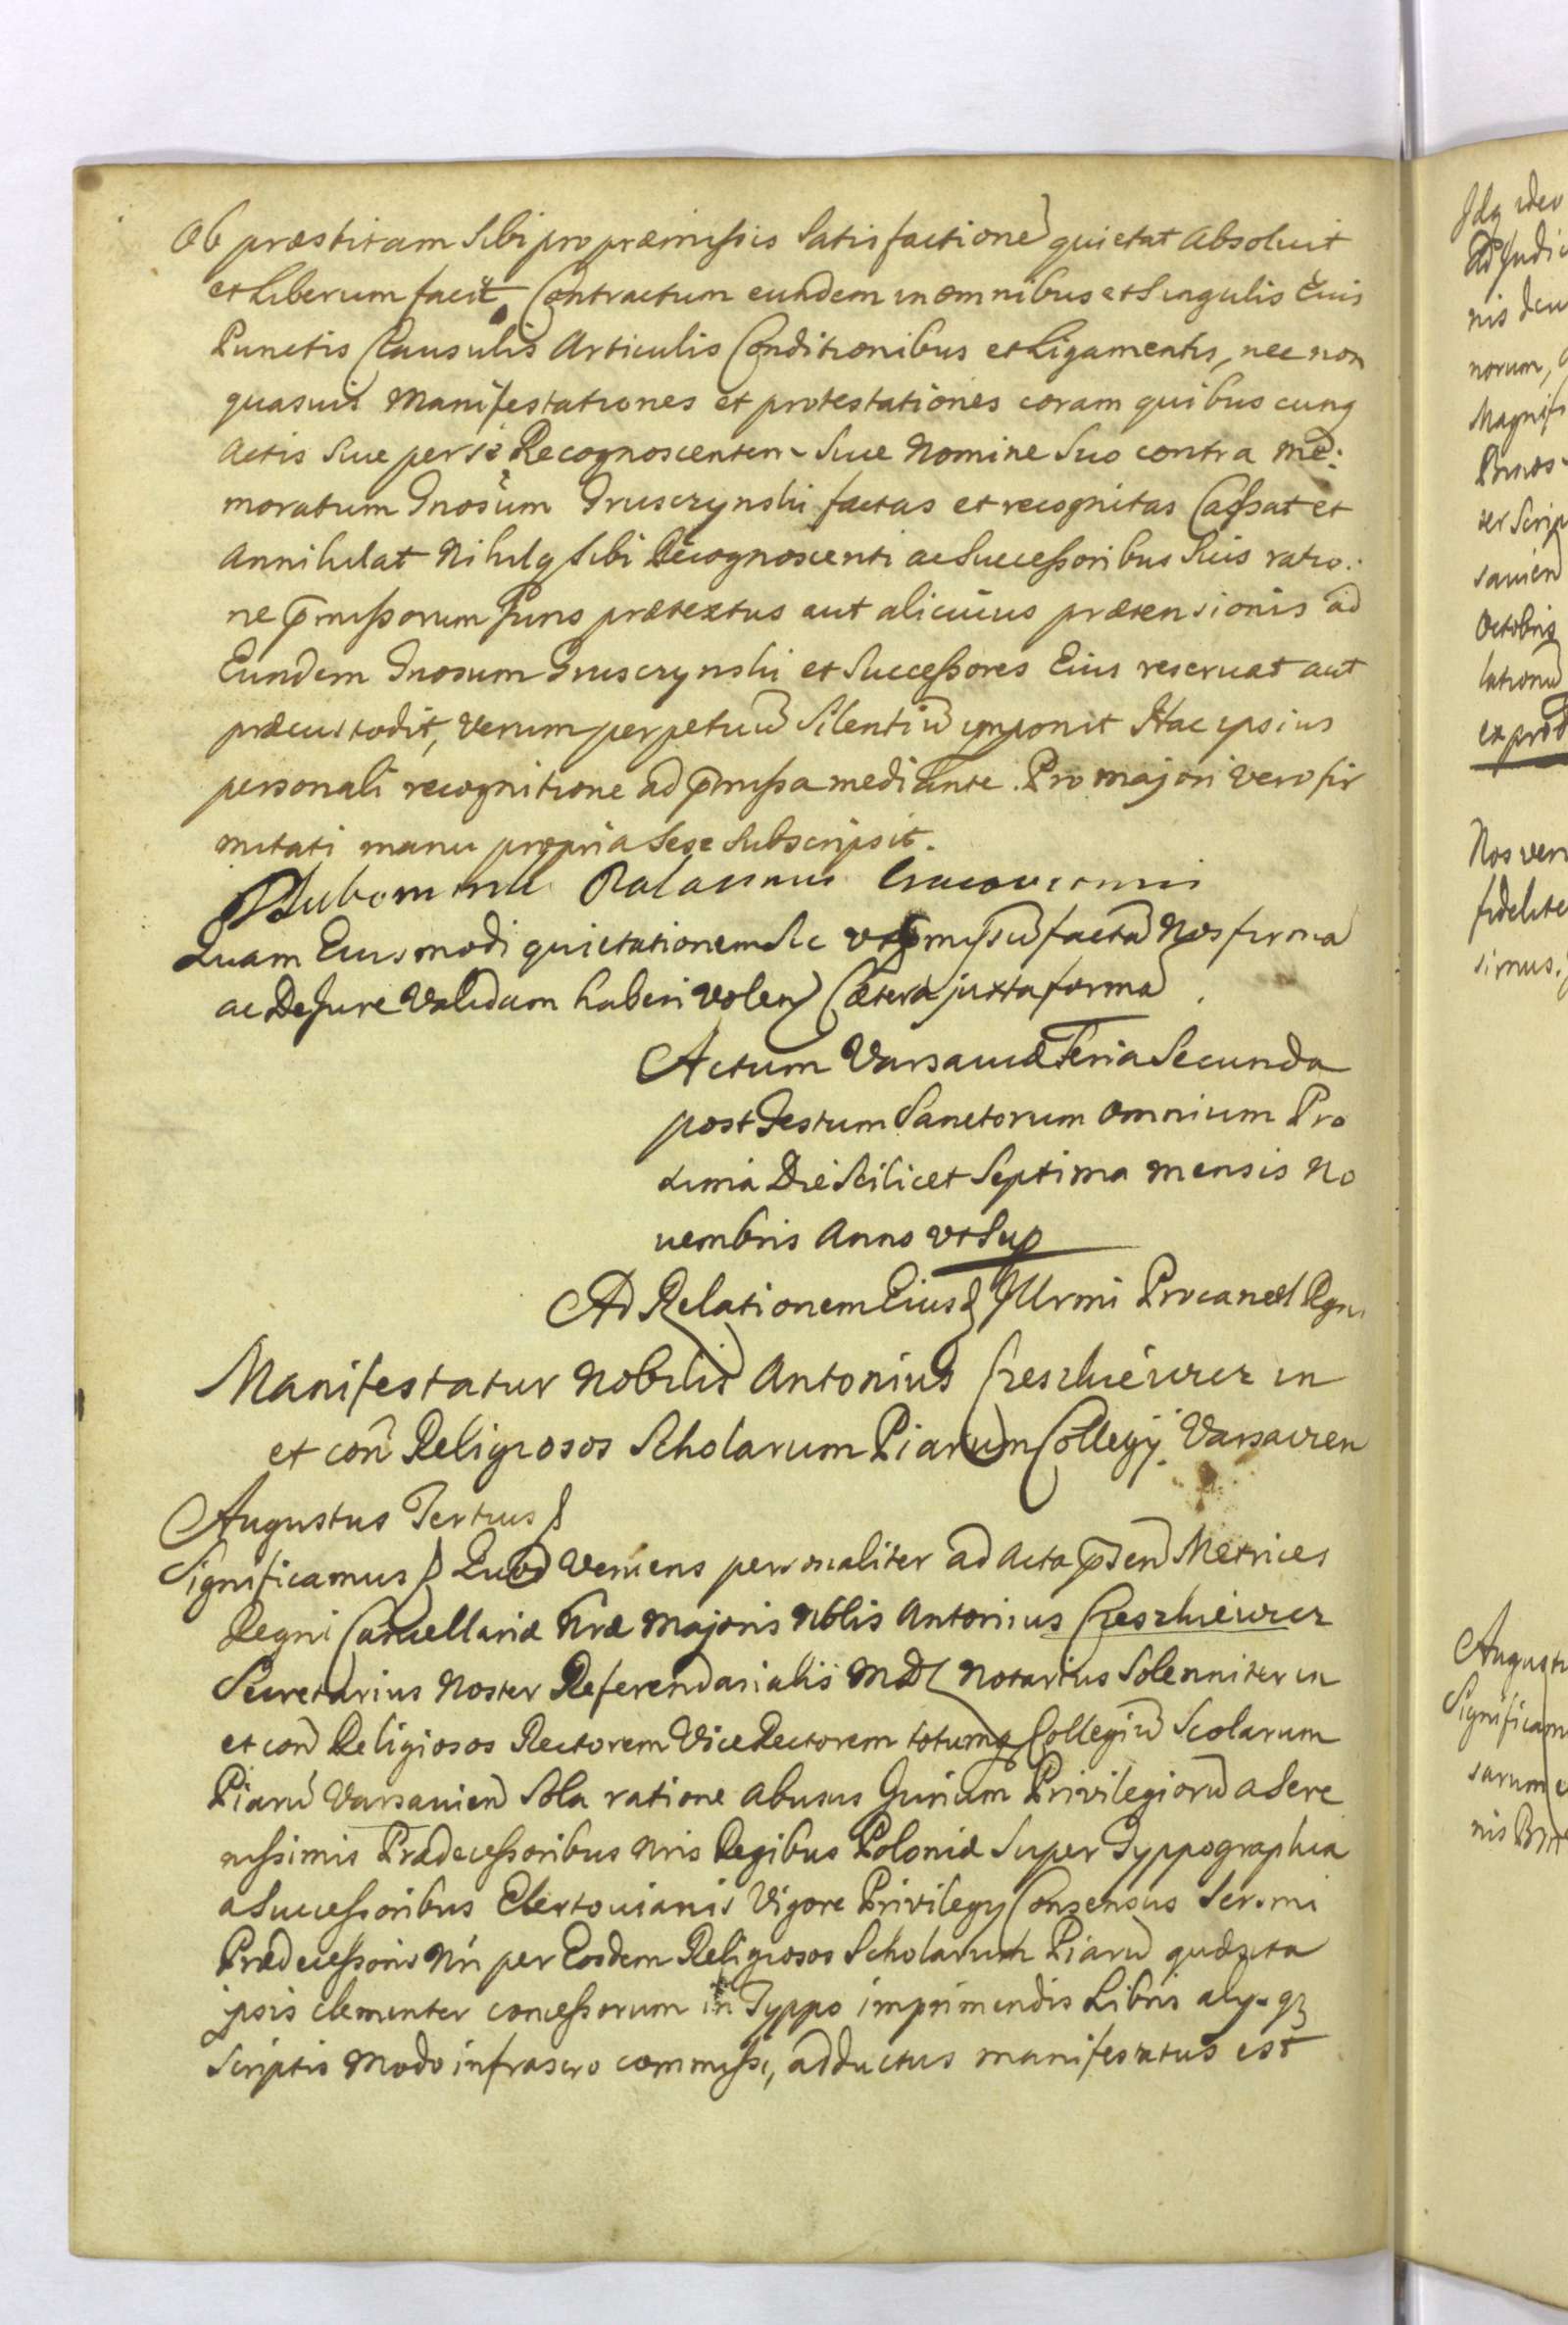 Ob præstitam Sibi pro præmissis Satisfactione quietat Absoluit
et Liberum facit, Contractum eundem in omnibus et Singulis Eius
Punctis Clausulis Articulis Conditionibus et Ligamentis, nec non
quasuis Manifestationes et protestationes coram quibuscunq
Actis Siue per se Recognoscentem Siue Nomine Suo contra me:
moratum Gnosum Gruszczynski factas et recognitas Cassat et
Annihilat Nihilq Sibi Recognoscenti ac Successoribus Suis ratio:
ne pmissorum Juris prætextus aut alicuius prætensionis ad
Eundem Gnosum Gruszczynski et Successores Eius reseruat aut
præcustodit, Verum perpetuu Silentiu imponit Hac ipsius
personali recognitione ad pmissa mediante. Pro majori vero fir
mitati manu propria Sese Subscripsit.
Palatinus Cracoviensis
Quam Eiusmodi quietationem Sic vt pmissu facta Nos firma
ac De Jure Validam haberi Volen Cætera juxta forma.
Actum Varsauiæ Feria Secunda
post Festum Sanctorum Omnium Pro
xima Die Scilicet Septima mensis No
uembris Anno vt Sup
Ad Relationem Eiusd Illrmi Procancel Regni
Manifestatur Nobilis Antonius in
et con Religiosos Scholarum Piarum Collegij Varsavien
Augustus Tertius
Significamus Quod Veniens personaliter ad Acta psen Metrices
Regni Cancellariæ Nræ Majoris Nblis Antonius
Secretarius Noster Referendarialis MDL Notarius Solenniter in
et con Religiosos Rectorem Vice Rectorem totumq Collegiu Scolarum
Piaru Varsauien Sola ratione abusus Jurium Privilegioru a Sere
nissimis Prædecessoribus Nris Regibus Poloniæ Super Typpographia
a Successoribus Elertouianis Vigore Privilegy Consensus Sermi
Prædecessoris Nri per Eosdem Religiosos Scholarum Piaru quæsita
ipsis clementer concessorum in Typpo imprimendis Libris alysq
Scriptis Modo infrascro commissi, adductus manifestatus est
Augustu
Significam